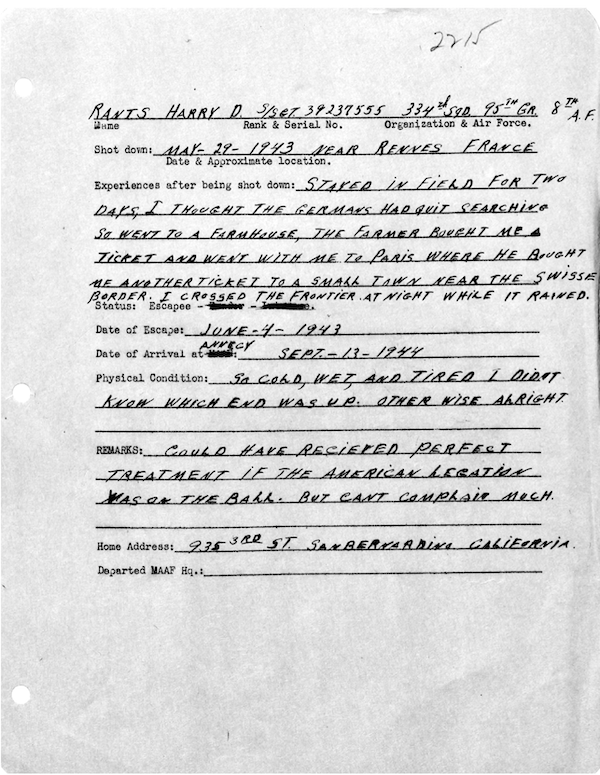 2215
RANTS HARRY D. S/SGT. 39237555 334th SQD. 95TH GR. 8TH A.F.
Name Rank & Serial No. Organization & Air Force.
Shot down: MAY-29-1943 NEAR RENNES FRANCE
Date & Approximate location.
Experiences after being shot down: STAYED IN FIELD FOR TWO
DAYS, I THOUGHT THE GERMANS HAD QUIT SEARCHING
SO WENT TO A FARMHOUSE, THE FARMER BOUGHT ME A
TICKET AND WENT WITH ME TO PARIS WHERE HE BOUGHT
ME ANOTHER TICKET TO A SMALL TOWN NEAR THE SWISSE
BORDER. I CROSSED THE FRONTIER AT NIGHT WHILE IT RAINED.
Status: Escapee -
Date of Escape: JUNE-4-1943
ANNECY
Date of Arrival at : SEPT.-13-1944
Physical Condition: SO COLD, WET, AND TIRED I DIDNT
KNOW WHICH END WAS UP. OTHER WISE ALRIGHT.
REMARKS: COULD HAVE RECIEVED PERFECT
TREATMENT IF THE AMERICAN LEGATION
WAS ON THE BALL. BUT CANT COMPLAIN MUCH.
Home Address: 935 3RD ST. SANBERNARDINO CALIFORNIA.
Departed MAAF Hq.: